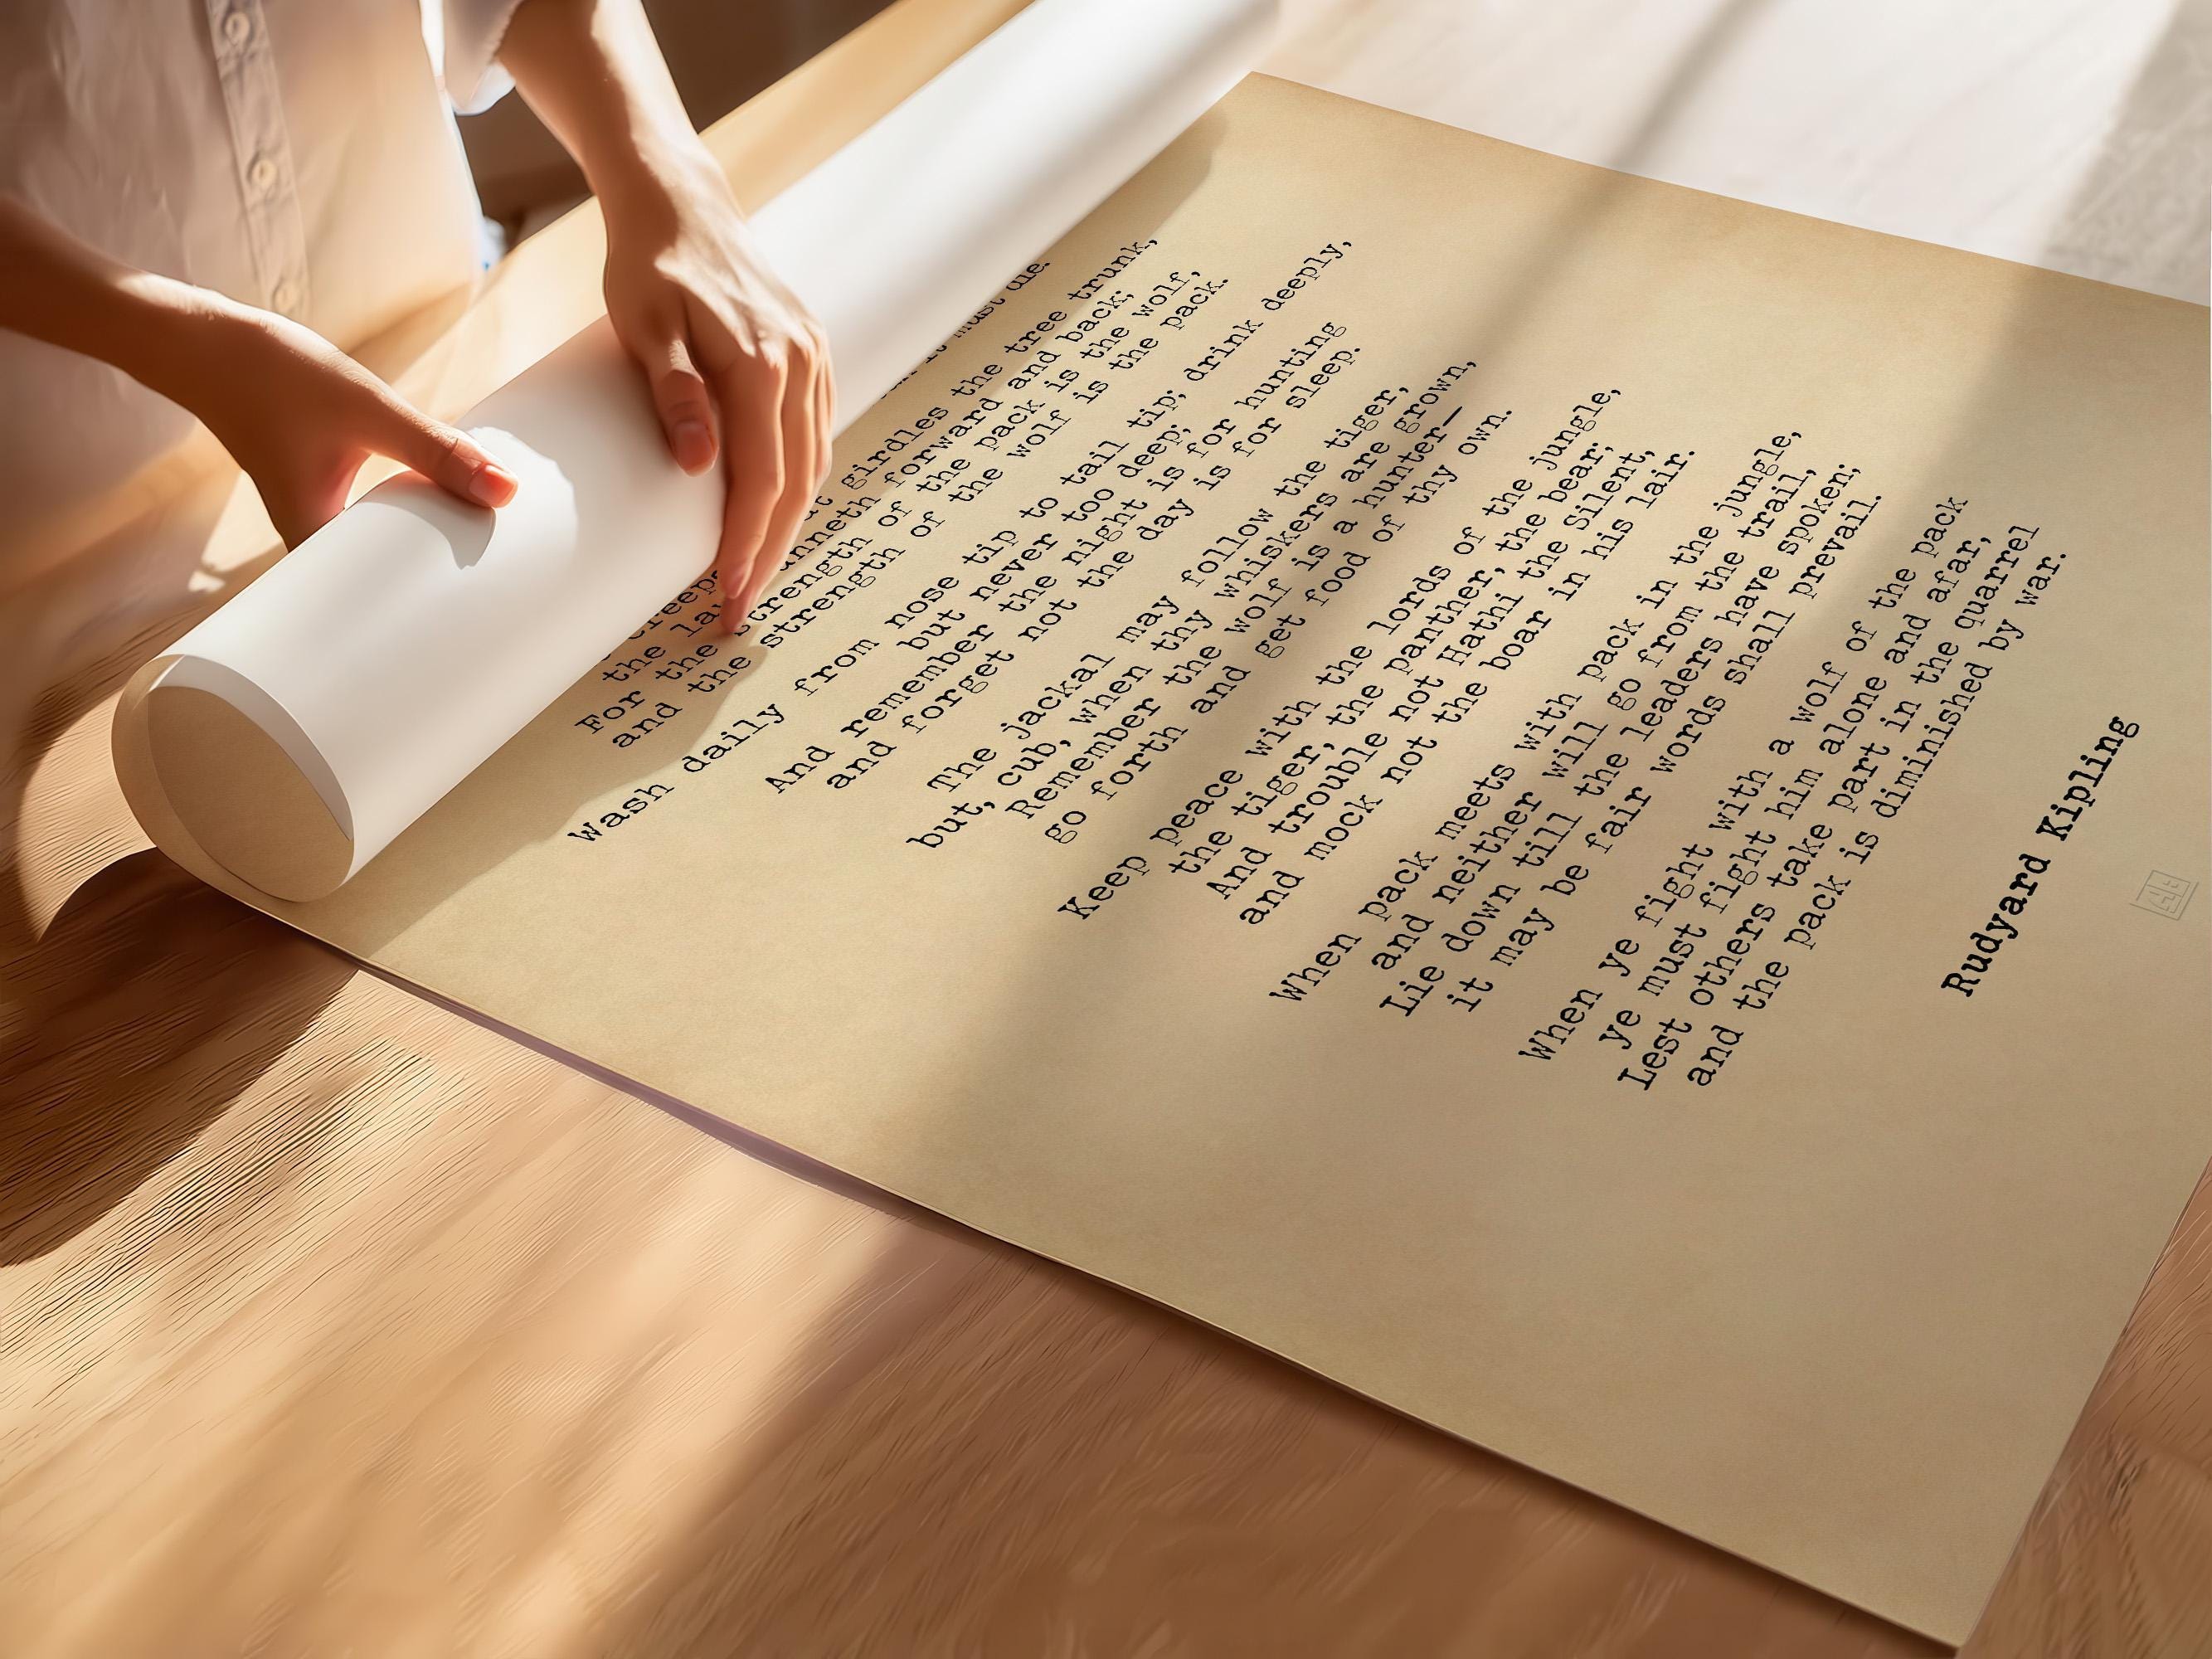 it must die.
creeps girdles the tree trunk,
the runneth forward and back;
For the strength of the pack is the wolf,
and the strength of the wolf is the pack.
Wash daily from nose tip to tail tip; drink deeply,
but never too deep;
And remember the night is for hunting
and forget not the day is for sleep.
The jackal may follow the tiger,
but, cub, when thy whiskers are grown,
Remember the wolf is a hunter—
go forth and get food of thy own.
Keep peace with the lords of the jungle,
the tiger, the panther, the bear;
And trouble not Hathi the Silent,
and mock not the boar in his lair.
When pack meets with pack in the jungle,
and neither will go from the trail,
Lie down till the leaders have spoken;
it may be fair words shall prevail.
When ye fight with a wolf of the pack
ye must fight him alone and afar,
Lest others take part in the quarrel
and the pack is diminished by war.
Rudyard Kipling